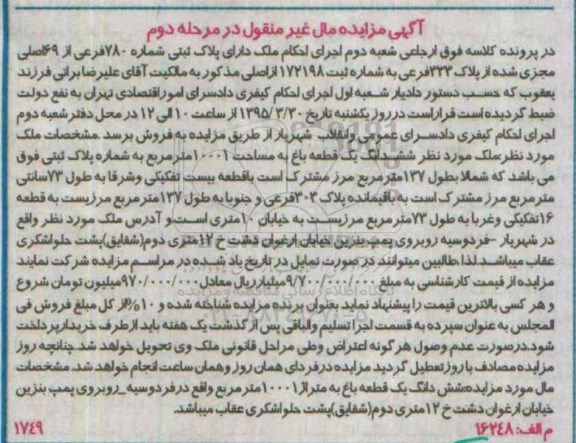 آگهی مزایده مال غیر منقول در مرحله دوم
در پرونده کلاسه فوق ارجاعی شعبه دوم اجرای احکام ملک دارای پلاک ثبتی شماره ۷۸۰فرعی از ۶۹اصلی
مجزی شده از پلاک ۳۳۳فرعی به شماره ثبت ۱۷۲۱۹۸ ازاصلی مذکور به مالکیت آقای علیرضا براتی فرزند
یعقوب که حسب دستور دادیار شعبه اول اجرای احکام کیفری دادسرای امور اقتصادی تهران به نفع دولت
ضبط گردیده است قراراست درروز یکشنبه تاریخ ۱۳۹۵/۳/۳۰ از ساعت ۱۰ الی ۱۲ در محل دفتر شعبه دوم
اجرای احکام کیفری دادسرای عمومی وانقلاب شهریار از طریق مزایده به فروش برسد .مشخصات ملک
مورد نظر:ملک مورد نظر ششدانگ یک قطعه باغ به مساحت ۱۰۰۰۱مترمربع به شماره پلاک ثبتی فوق
می باشد که شمالا بطول ۱۳۷مترمربع مرز مشترک است باقطعه بیست تفکیکی وشرقا به طول ۷۳سانتی
متر مربع مرز مشترک است به باقیمانده پلاک ۳۰۳فرعی و جنوبا به طول ۱۳۷متر مربع مرزیست به قطعه
۱۶تفکیکی وغربا به طول ۷۳متر مربع مرزیست به خیابان ۱۰متری است و آدرس ملک مورد نظر واقع
در شهریار -فردوسیه روبروی پمپ بنزین خیابان ارغوان دشت خ ۱۲متری دوم(شقایق)پشت حلواشکری
عقاب میباشد.لذا طالبین میتوانند در صورت تمایل در تاریخ یاد شده در مراسم مزایده شرکت نمایند
مزایده از قیمت کارشناسی به مبلغ ۹/۷۰۰/۰۰۰/۰۰۰میلیارریال معادل۹۷۰/۰۰۰/۰۰۰میلیون تومان شروع
و هر کسی بالاترین قیمت را پیشنهاد نماید بعنوان برنده مزایده شناخته شده و ۱۰%از کل مبلغ فروش فی
المجلس به عنوان سپرده به قسمت اجرا تسلیم والباقی پس از گذشت یک هفته باید ازطرف خریدارپرداخت
شود.درصورت عدم وصول هر گونه اعتراض وطی مراحل قانونی ملک وی تحویل خواهد شد.چنانچه روز
مزایده مصادف با روز تعطیل گردید مزایده درفردای همان روز وهمان ساعت انجام خواهد شد. مشخصات
مال مورد مزایده:شش دانگ یک قطعه باغ به متراژ۱۰۰۰۱متر مربع واقع در فردوسیه_روبروی پمپ بنزین
خیابان ارغوان دشت خ ۱۲متری دوم(شقایق)پشت حلواشکری عقاب میباشد.
م الف: ۱۶۲۴۸ ۱۷۴۹